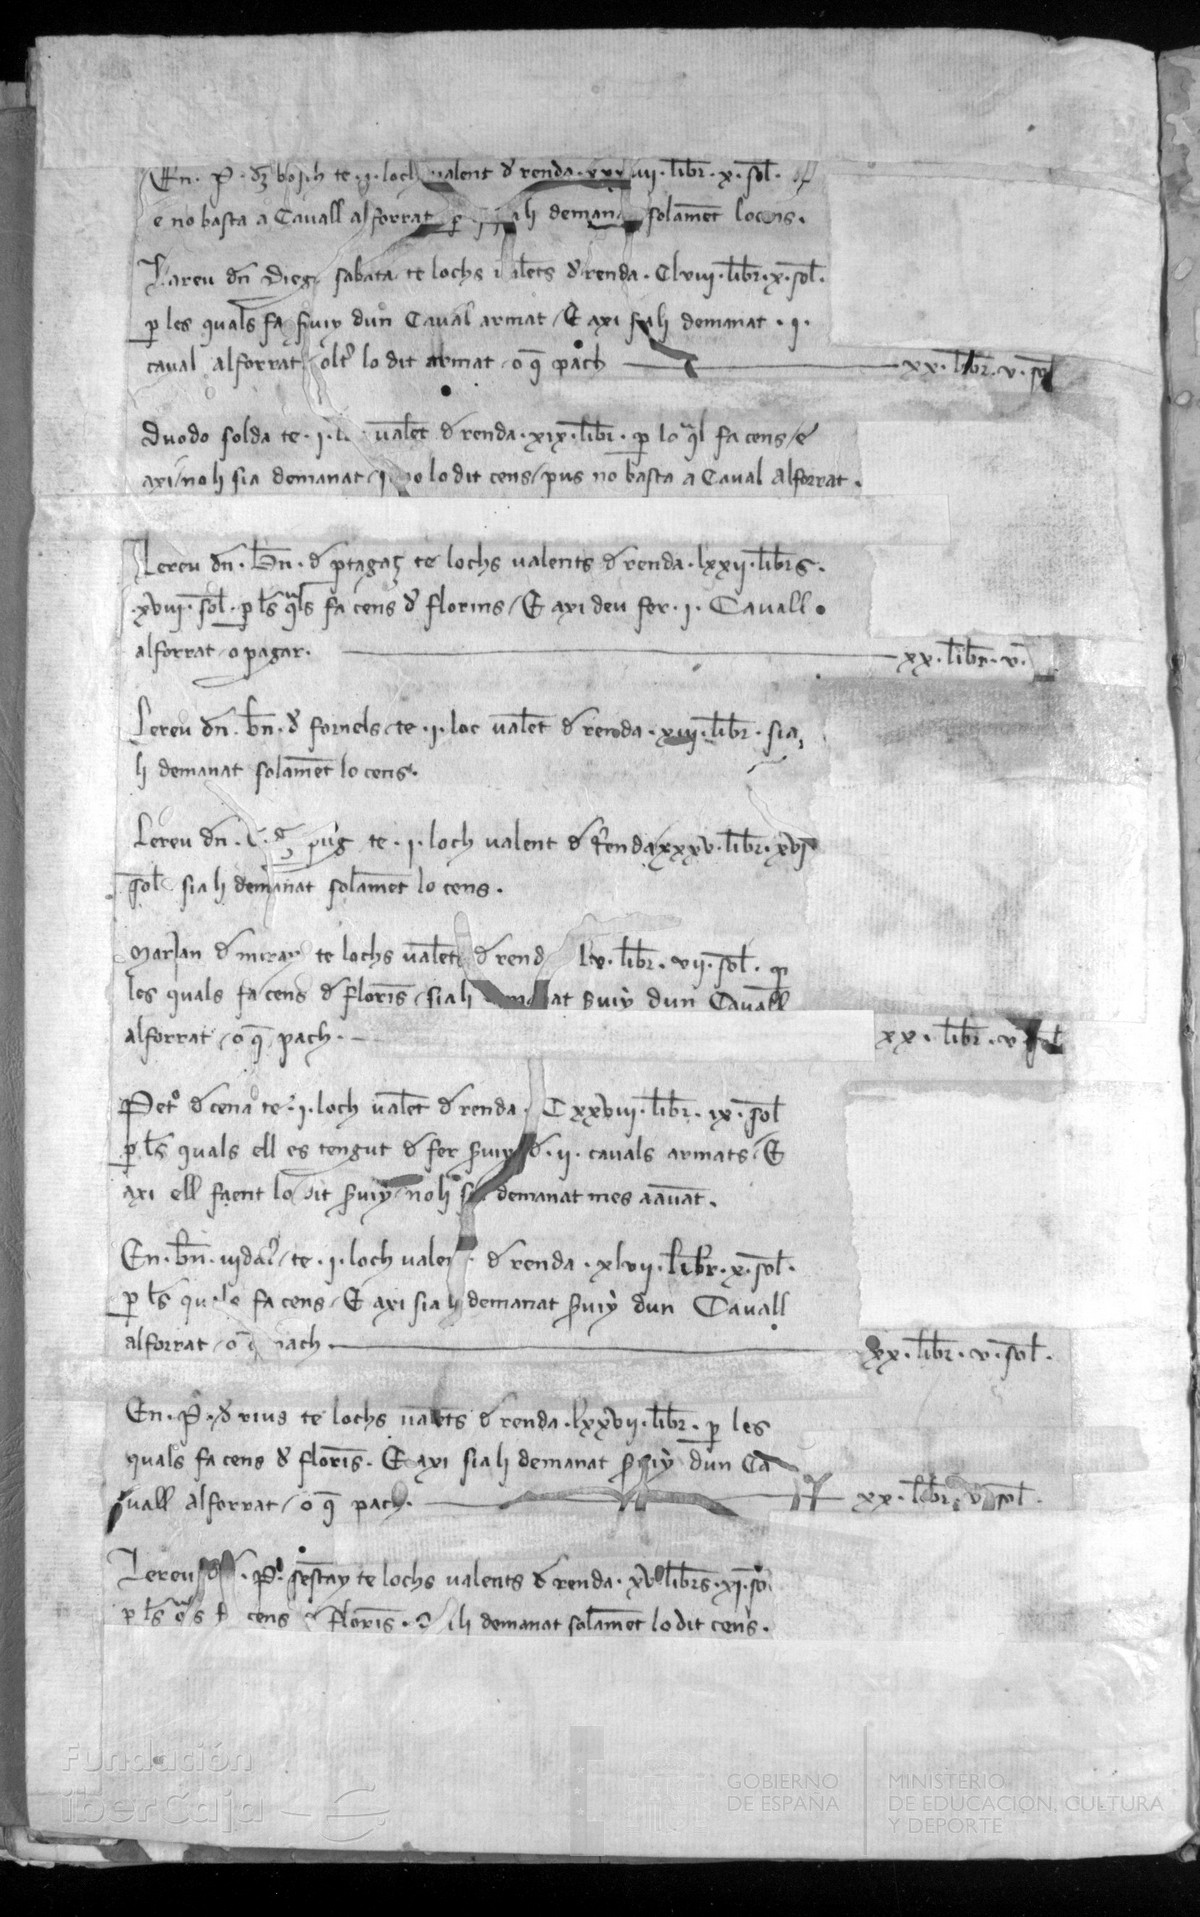 En · P · dez bosch te · i · loch valent d renda · xxxvii · libr · x · sol ·
e no basta a Cavall alforrat p ah demana solament lo cens ·
Lareu dn Dieg sabata te lochs valets d renda · Clviii · libr · x · sol ·
p les quals fa svuy dun Caval armat / E axi siah demanat · i ·
caval alforrat / olt lo dit armat / o q pach xx · libr · v · sol
Duodo solda te · i · valet d renda · xix · libr · p lo ql fa cens / e
axi / noh sia demanat / lo dit cens / pus no basta a Caval alforrat ·
Lereu dn · bn · d te lochs valents d renda · lxxii · librs ·
· xviii · sol · p ls qls fa cens d florins / E axi deu fer · i · Cavall
alforrat / o pagar · xx · libr · v ·
Lereu dn · bn · d fornels / te · i · loc valet d renda · xiii · libr · sia
h demanat solamet lo cens ·
Lereu dn · puig te · i · loch valent d renda xxxv · libr · xvi
sol siah demanat solamet lo cens ·
marjan d te lochs valets d rend · libr · vii · sol · p
les quals fa cens d floris / siah at svuy dun Cavall
alforrat / o q pach · xx · libr · v sol
Pet d cena te · i · loch valet d renda · Cxxviii · libr · ix · sol
p ls quals ell es tengut d fer svuy d · ii · cavals armats / E
axi ell faent lo dit svuy / noh demanat mes aavat ·
En · bn · vidal / te · i · loch valet d renda · xlvii · libr · x · sol ·
p ls quals fa cens / E axi siah demanat svuy dun Cavall
alforrat / o pach · xx · libr · v · sol ·
En · P · d rius te lochs valets d renda · lxxvii · libr · p les
quals fa cens d floris · E axi siah demanat svuy dun Ca
vall alforrat / o q pach · xx · libr · v sol ·
Lereu d · P · sestay te lochs valents d renda · librs · xi · so
p ls qls cens d floris · demanat solamet lo dit cens ·
Fundación
iberCaja
GOBIERNO
DE ESPAÑA
MINISTERIO
DE EDUCACIÓN, CULTURA
Y DEPORTE